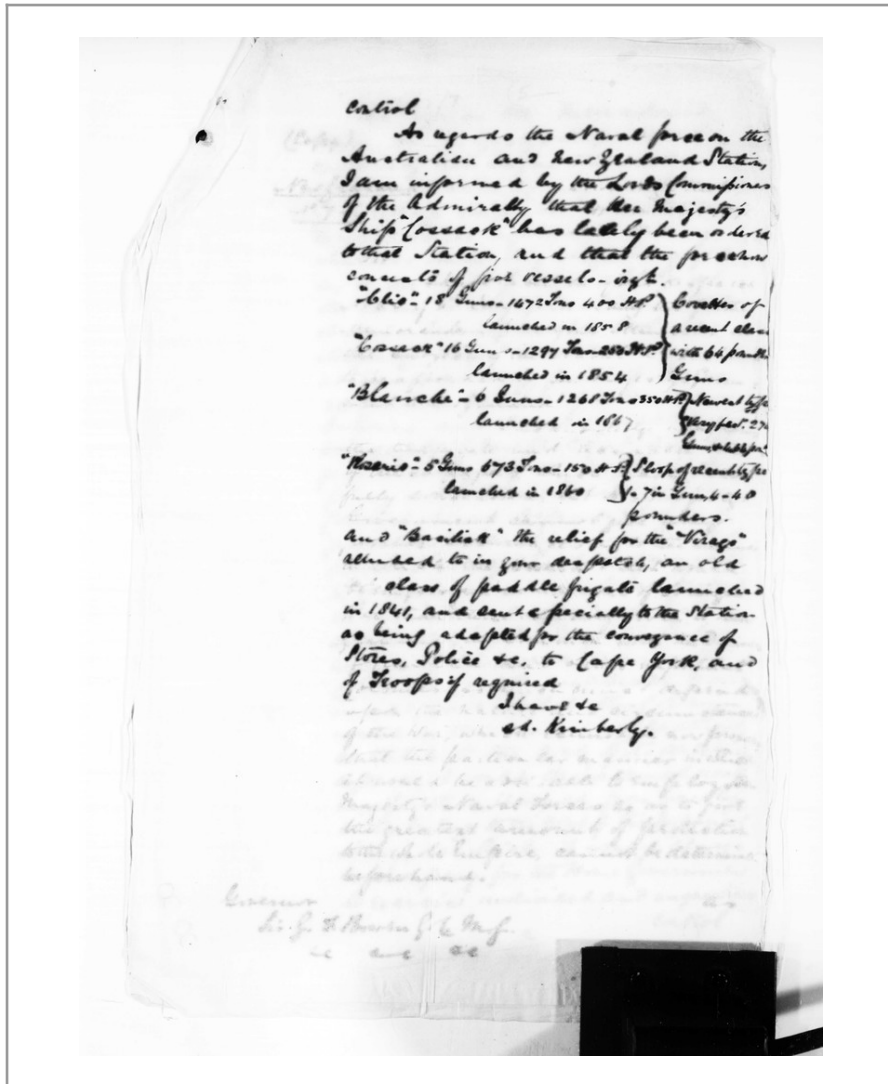 control
As regards the Naval force on the
Australian and New Zealand Station,
I am informed by the Lords Commissioners
of the Admiralty that Her Majesty's
Ship "Cossack" has lately been ordered
to that Station, and that the force now
consists of five vessels - viz.
"Clio" - 18 Guns - 1472 Tons 400 H.P.
launched in 1858
"Cossack" 16 Guns - 1297 Tons - 250 H.P.
launched in 1854
Corvettes of
a recent class
with 64 pounder
Guns
"Blanche" - 6 Guns - 1268 Tons 350 H.P.
launched in 1867
Newest type
Guns
"Rosario" - 5 Guns 673 Tons - 150 H.P.
launched in 1860
Sloop of recent type
1 - 7 in Gun, 4 - 40
pounders.
and "Basilisk" the relief for the "Virago"
alluded to in your despatch, an old
class of paddle frigate launched
in 1841, and sent specially to the Station
as being adapted for the conveyance of
Stores, Police &c, to Cape York, and
of Troops if required
I have &c
sd. Kimberly.
the particular manner in
Majesty's Naval Forces so as to give
the greatest amount of protection
to the whole Empire, cannot be determined
beforehand.
Governor
Sir G. F. Bowen G.C.M.G.
&c &c &c